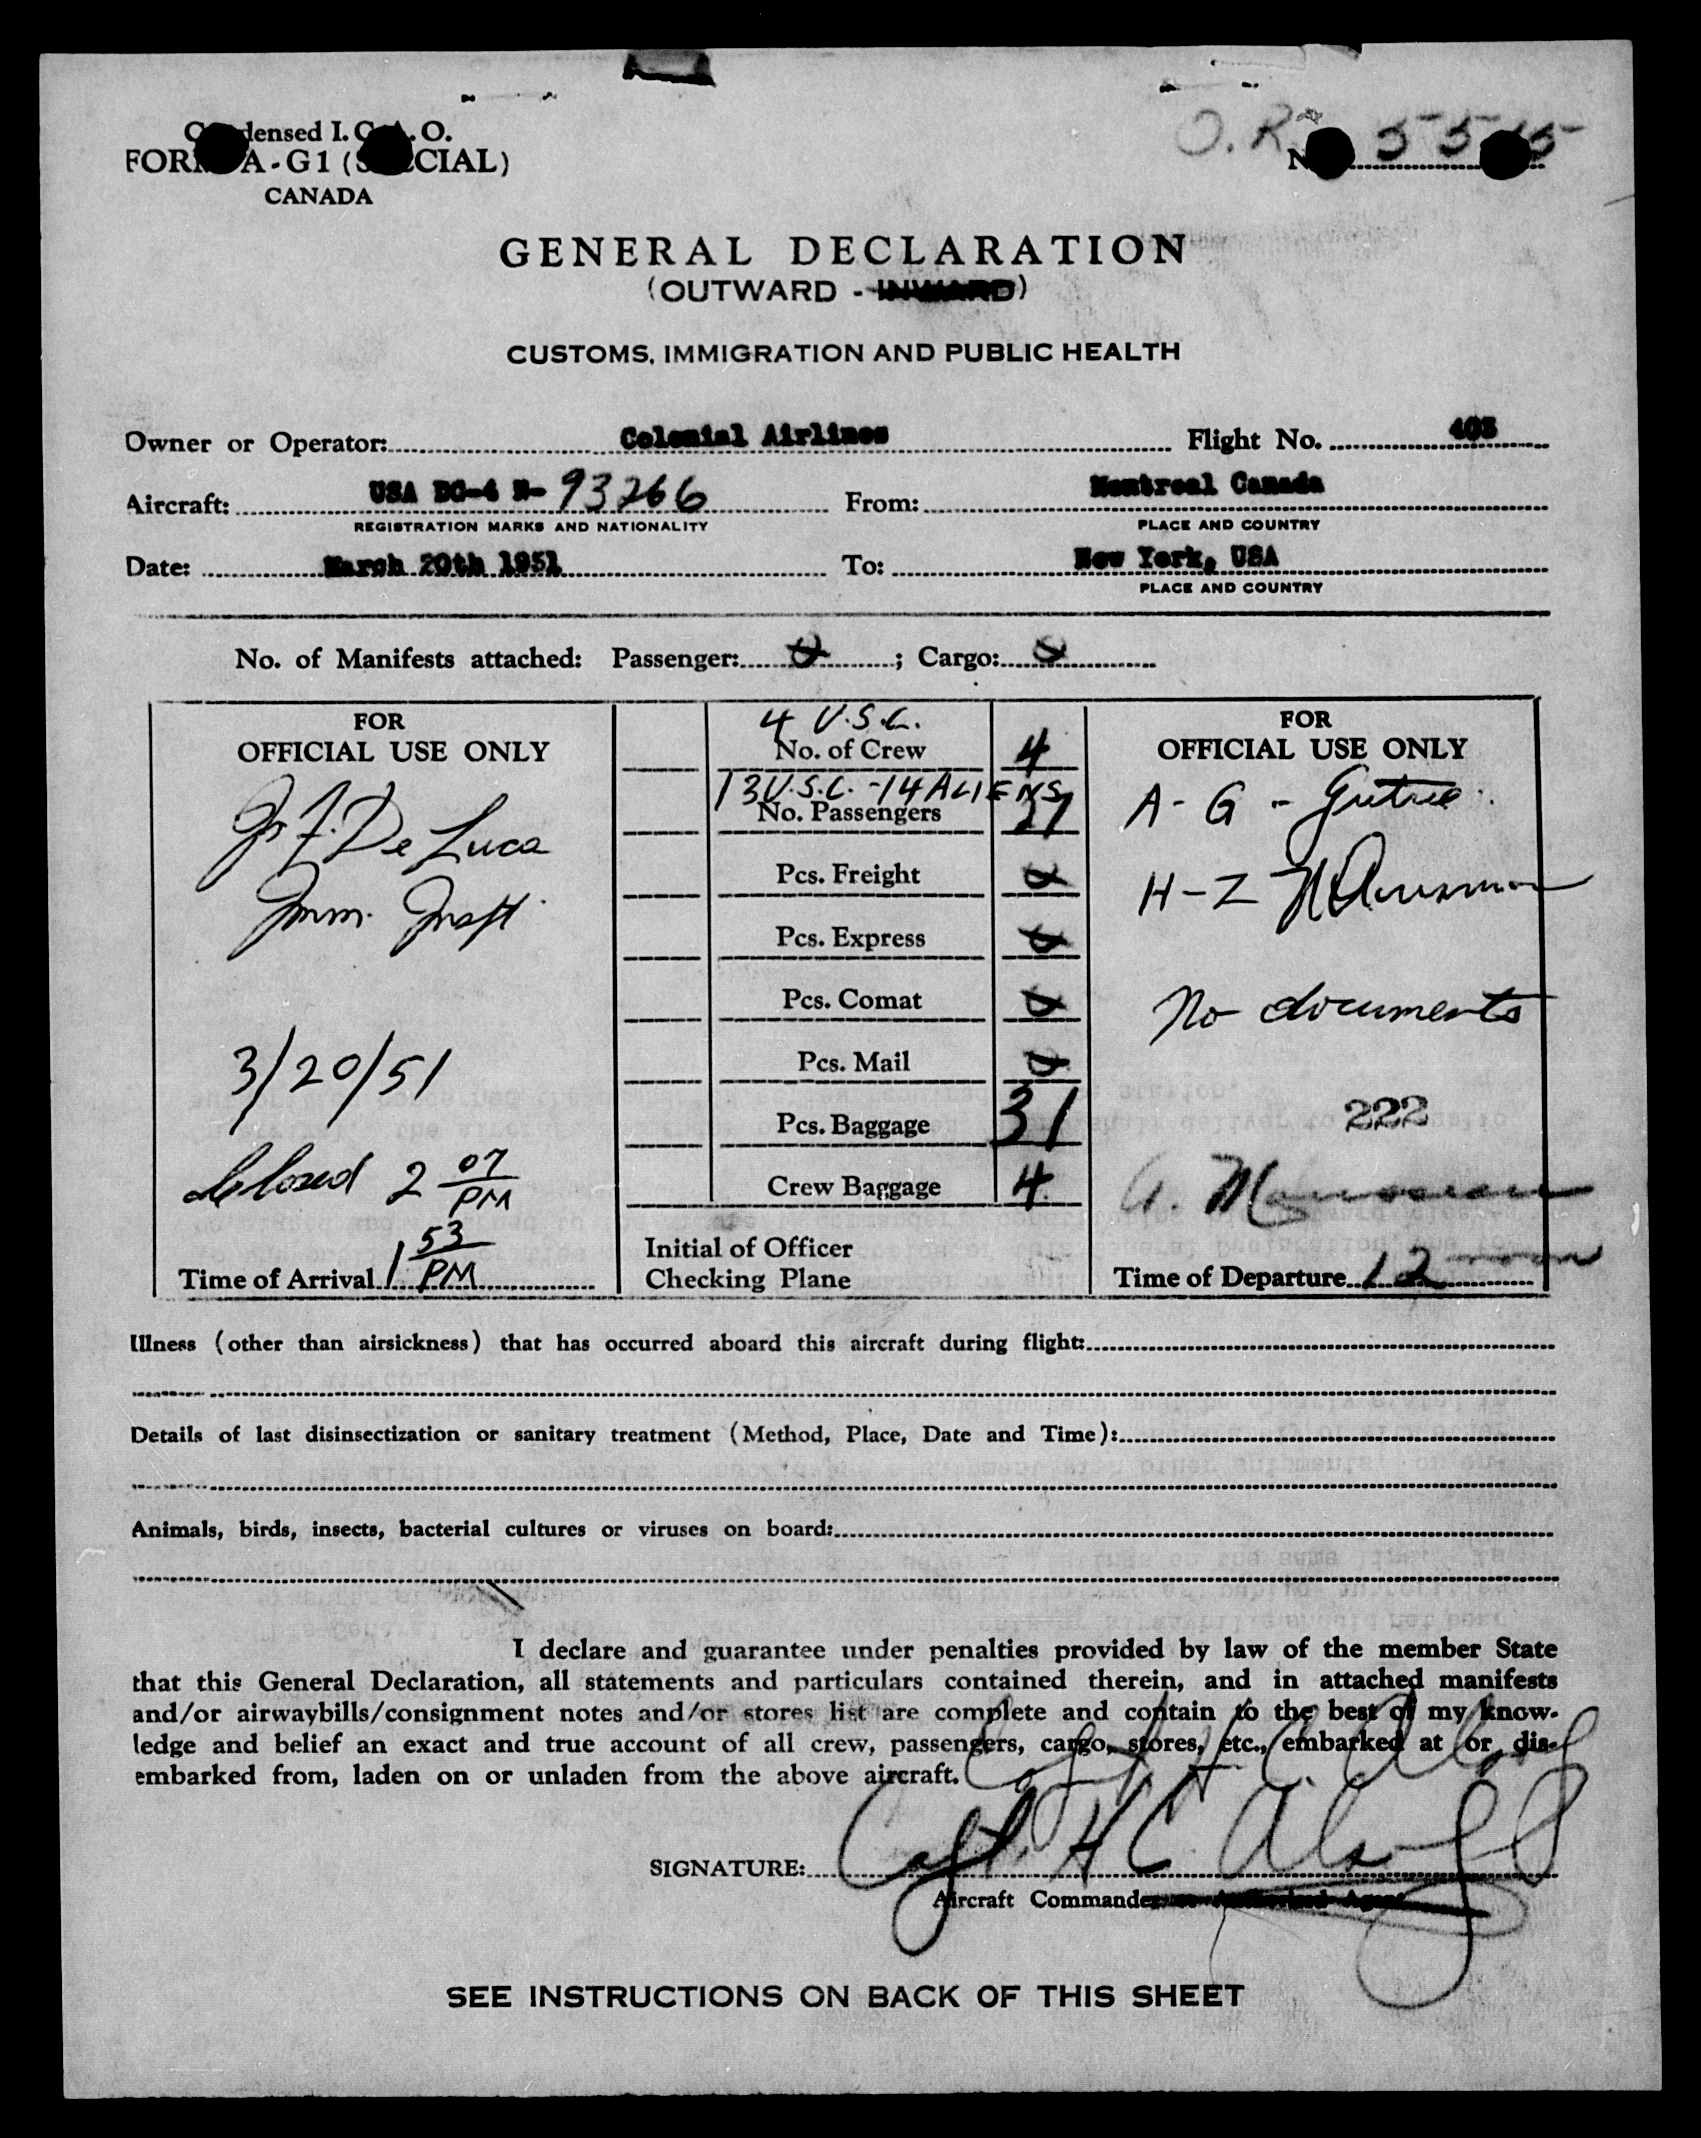 Condensed I.C.A.O.
FORM A-G1 (SPECIAL)
CANADA
O.R. 5535
GENERAL DECLARATION
(OUTWARD - INWARD)
CUSTOMS, IMMIGRATION AND PUBLIC HEALTH
Owner or Operator: Colonial Airlines Flight No. 403
Aircraft: USA DC-4 N- 93266 From: Montreal Canada
REGISTRATION MARKS AND NATIONALITY PLACE AND COUNTRY
Date: March 20th 1951 To: New York, USA
PLACE AND COUNTRY
No. of Manifests attached: Passenger: 0; Cargo: 0
FOR
OFFICIAL USE ONLY
De Luca
Imm. Inspt.
3/20/51
Closed 2 07 PM
Time of Arrival 1 53 PM
4 U.S.C.
No. of Crew 4
13 U.S.C. - 14 ALIENS
No. Passengers 27
Pcs. Freight 0
Pcs. Express 0
Pcs. Comat 0
Pcs. Mail 0
Pcs. Baggage 31
Crew Baggage 4
Initial of Officer
Checking Plane
FOR
OFFICIAL USE ONLY
A - G -
H - Z
No documents
222
Time of Departure 12 noon
Illness (other than airsickness) that has occurred aboard this aircraft during flight:
Details of last disinsectization or sanitary treatment (Method, Place, Date and Time):
Animals, birds, insects, bacterial cultures or viruses on board:
I declare and guarantee under penalties provided by law of the member State
that this General Declaration, all statements and particulars contained therein, and in attached manifests
and/or airwaybills/consignment notes and/or stores list are complete and contain to the best of my know-
ledge and belief an exact and true account of all crew, passengers, cargo, stores, etc., embarked at or dis-
embarked from, laden on or unladen from the above aircraft.
Capt. H. C.
SIGNATURE: Capt. H C
Aircraft Commander or Authorized Agent
SEE INSTRUCTIONS ON BACK OF THIS SHEET